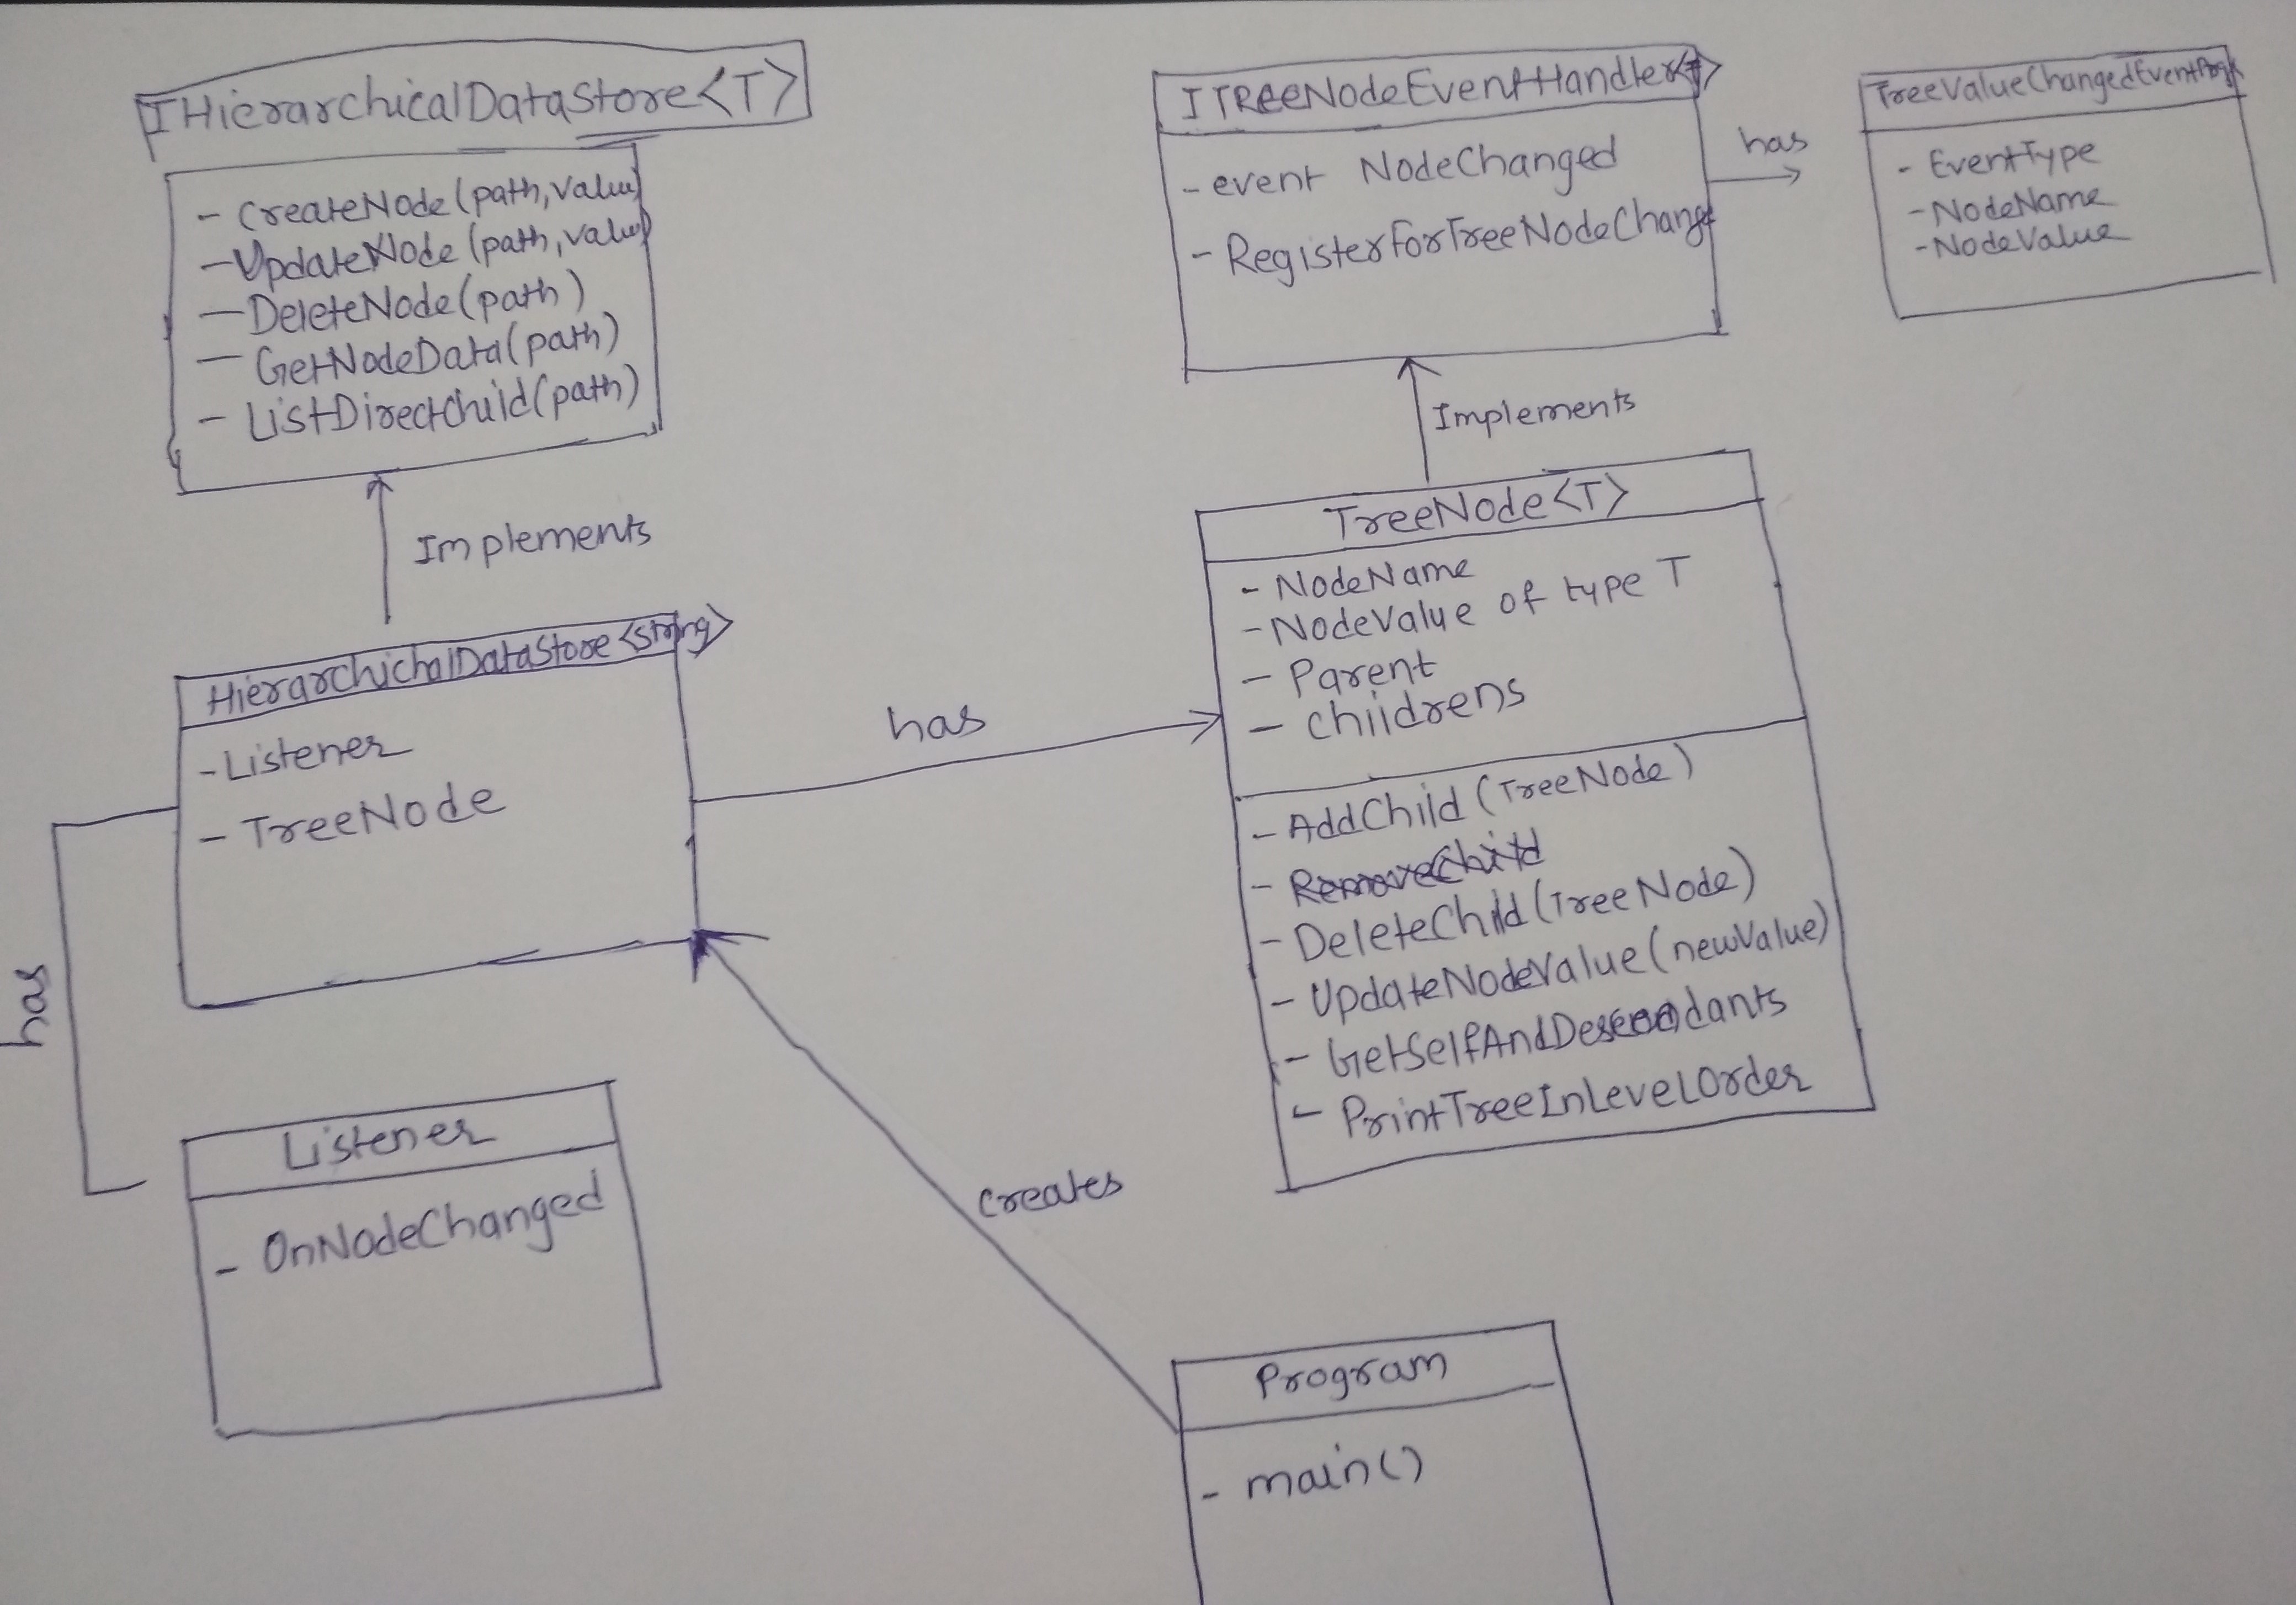 IHierarchicalDataStore<T>
- CreateNode(path,value)
- UpdateNode(path,value)
- DeleteNode(path)
- GetNodeData(path)
- ListDirectChild(path)
Implements
HierarchichalDataStore<string>
- Listener
- TreeNode
has
Listener
- OnNodeChanged
has
ITREENodeEventHandler<T>
- event NodeChanged
- RegisterForTreeNodeChange
has
- EventType
- NodeName
- NodeValue
Implements
TreeNode<T>
- NodeName
- NodeValue of type T
- Parent
- Childrens
- AddChild(TreeNode)
- RemoveChild
- DeleteChild(TreeNode)
- UpdateNodeValue(newValue)
- GetSelfAndDescendants
- PrintTreeInLevelOrder
creates
Program
- main()